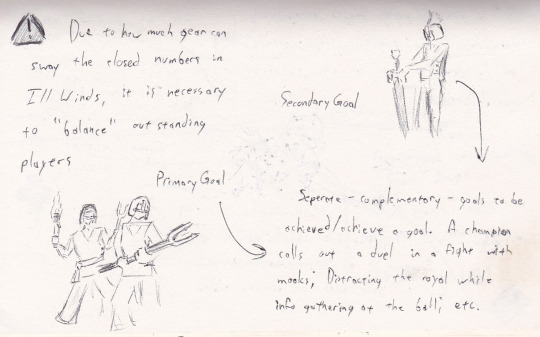 !
Due to how much gear can
sway the closed numbers in
Ill Winds, it is necessary
to "balance" out standing
players
Secondary Goal
Primary Goal
Seperate - complementary - goals to be
achieved/achieve a goal. A champion
calls out a duel in a fight with
mooks; Distracting the royal while
info gathering at the ball; etc.